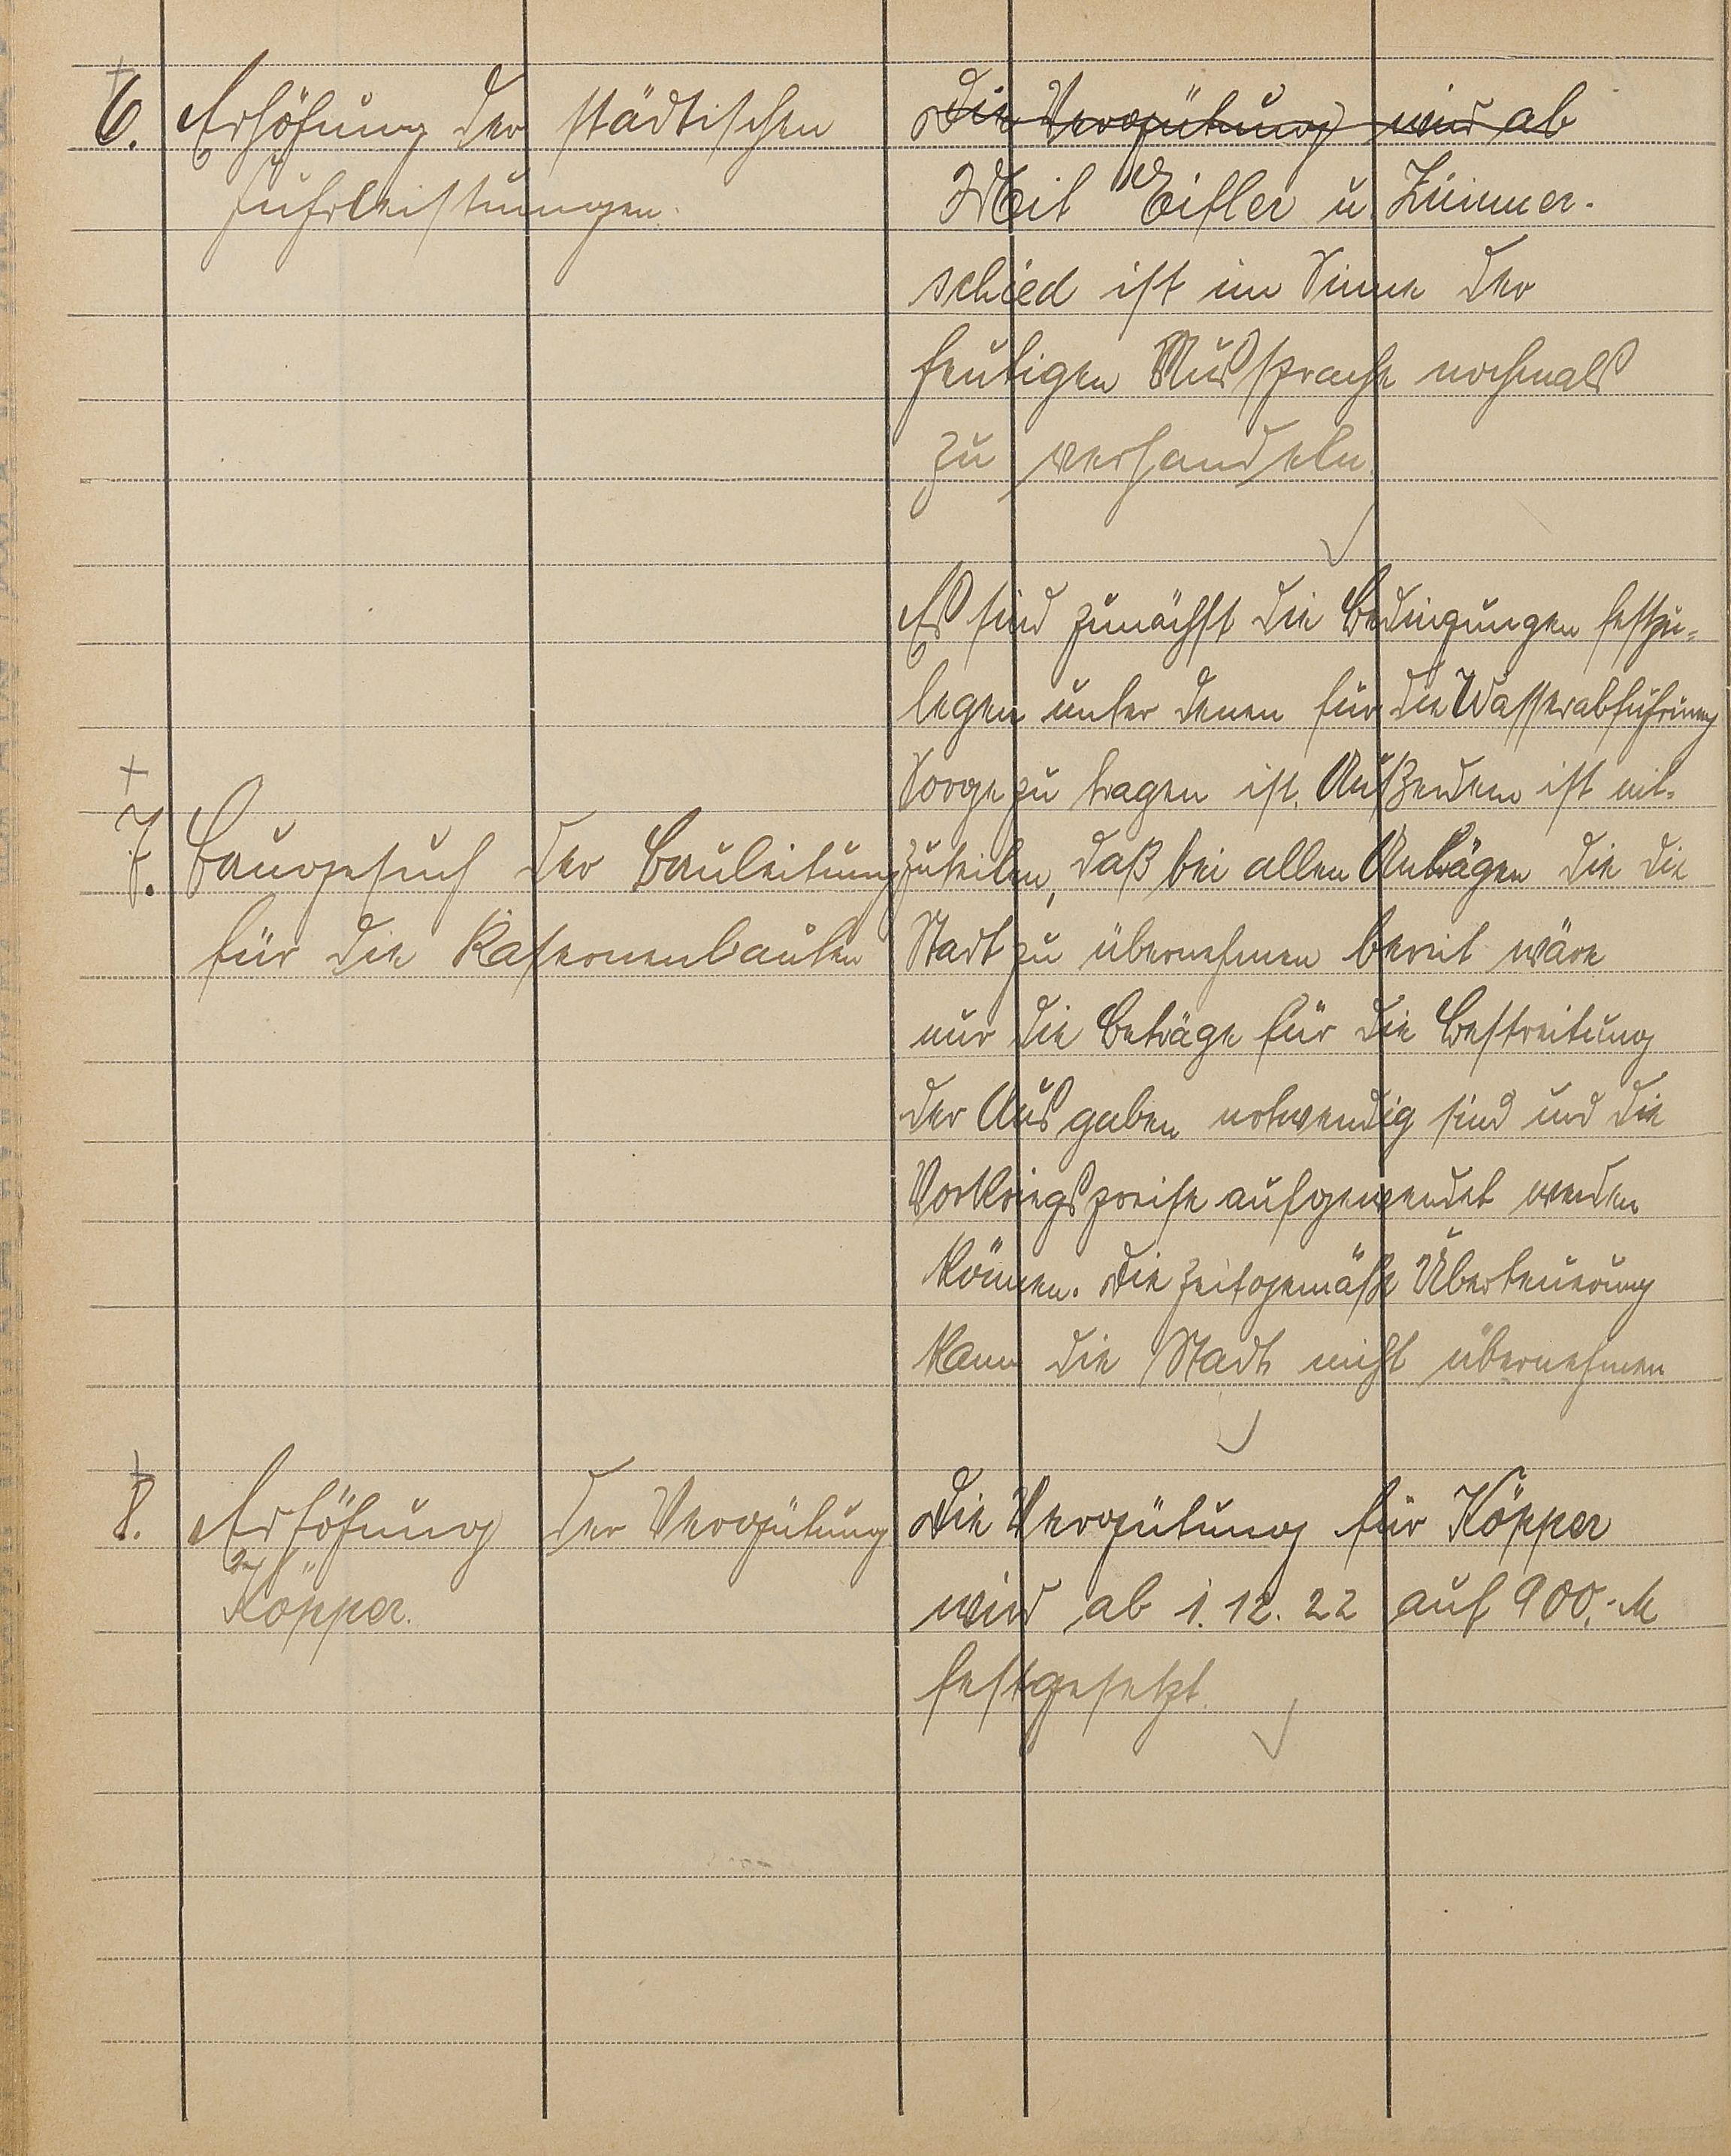 6. Erhöhung der städtischen
Fuhrleistungen.
Die Vergütung wird ab
Mit Eifler u. Zimmer-
schied ist im Sinne der
heutigen Aussprache nochmals
zu verhandeln.
Es sind zunächst die Bedingungen festzu=
legen unter denen für die Wasserabführung
Sorge zu tragen ist. Außerdem ist mit-
7. Baugesuch der Bauleitung
für die Kasernenbauten
zuteilen, daß bei allen Anträgen die die
Stadt zu übernehmen bereit wäre
nur die Beträge für die Bestreitung
der Ausgaben notwendig sind und die
Vorkriegspreise aufgewendet werden
können. Die zeitgemäße Überteuerung
kann die Stadt nicht übernehmen
8. Erhöhung der Vergütung
Köpper.
Die Vergütung für Köpper
wird ab 1.12.22 auf 900,- M
festgesetzt.